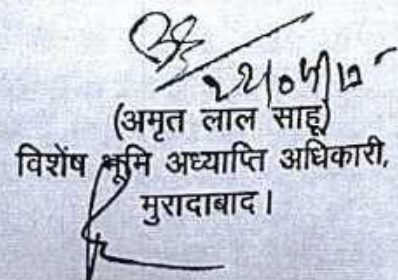 (अमृत लाल साहू)
विशेंष भूमि अध्याप्ति अधिकारी,
मुरादाबाद।